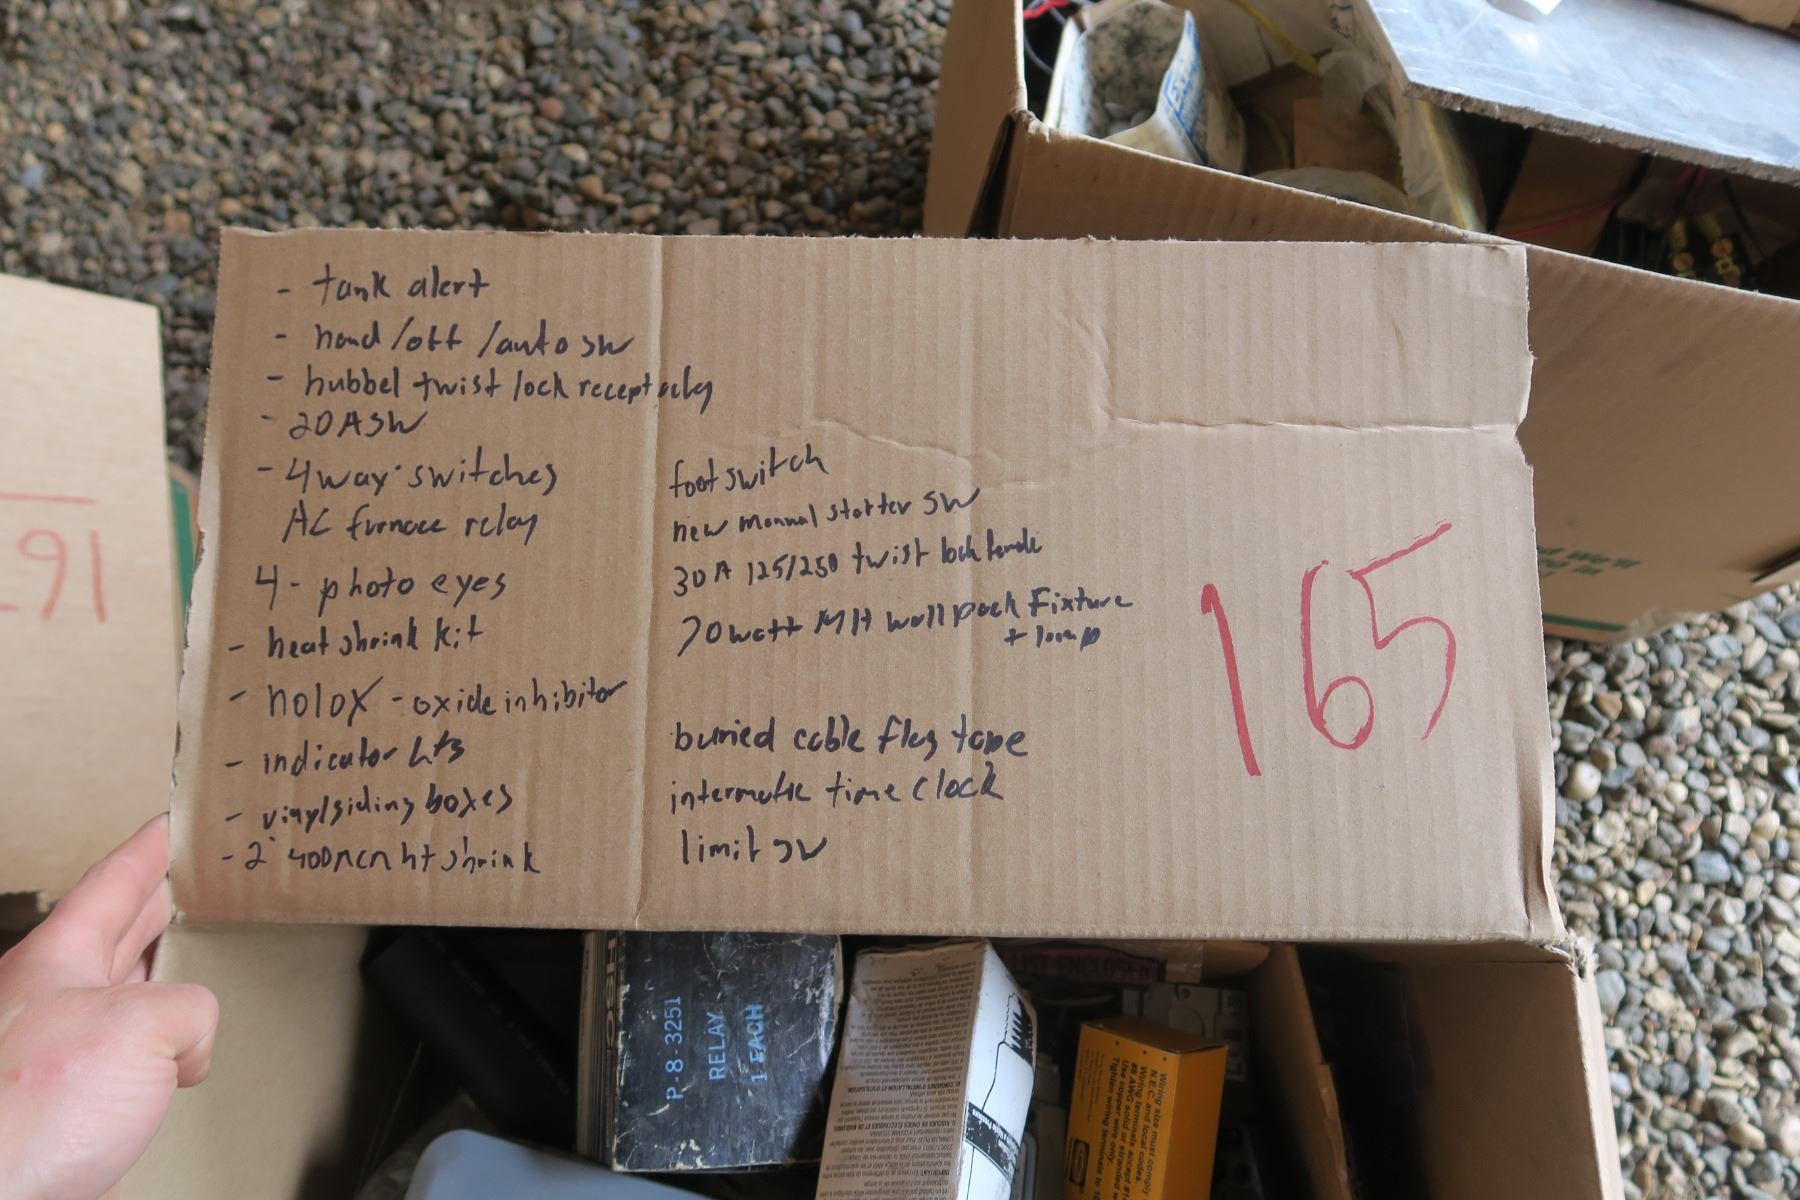 - tank alert
- hand/off/auto sw
- hubbel twist lock receptacles
- 20A SW
- 4 way switches
AC furnace relay
4 - photo eyes
- heat shrink kit
- nolox - oxide inhibitor
- indicator Lts
- vinyl siding boxes
- 2" 400 mcm ht shrink
foot switch
new manual starter SW
30A 125/250 twist lock female
70 watt MH wall pack Fixture
+ lamp
buried cable flag tape
intermatic time clock
limit sw
165
167
P.8-3251
RELAY
1 EACH
Wiring size must comply
N.E.C. and local codes.
Wiring terminals accept #1
#8 AWG solid or stranded w
Use copper wire only.
Tighten wiring terminals to 1
LIST ENCLOSED